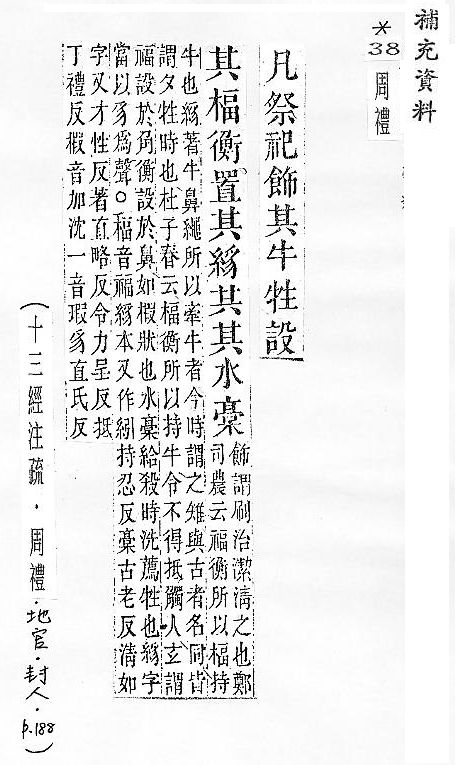 補充資料
*
38
周禮
凡祭祀飾其牛牲設
其楅衡置其絼共其水稾
飾謂刷治潔清之也鄭
司農云楅衡所以楅持
牛也絼著牛鼻繩所以牽牛者今時謂之雉與古者名同皆
謂夕牲時也杜子春云楅衡所以持牛令不得抵觸人玄謂
楅設於角衡設於鼻如椵狀也水稾給殺時洗薦牲也絼字
當以豸為聲○楅音福絼本又作紖持忍反稾古老反清如
字又才性反著直略反令力呈反抵
丁禮反椵音加沈一音瑕豸直氏反
(十三經注疏．周禮．地官．封人．p.188)